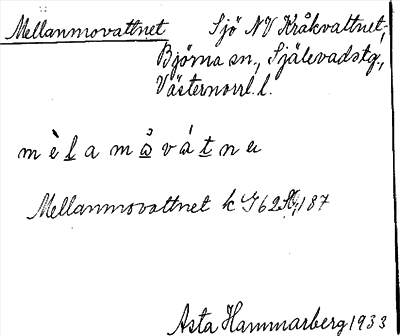 Mellanmovattnet Sjö NV Kråkvattnet,
Björna sn., Själevads tg,
Västernorrl. l.
m è l a m å v á t n e
Mellanmovattnet k G 62 187
Asta Hammarberg 1933